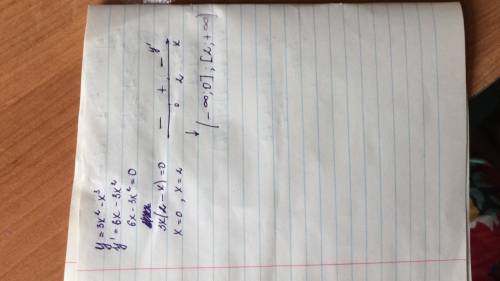 y = 3x² - x³
y' = 6x - 3x²
6x - 3x² = 0
3x(2 - x) = 0
x = 0, x = 2
- + - y'
0 2 x
↓ (-∞; 0] ; [2, +∞)